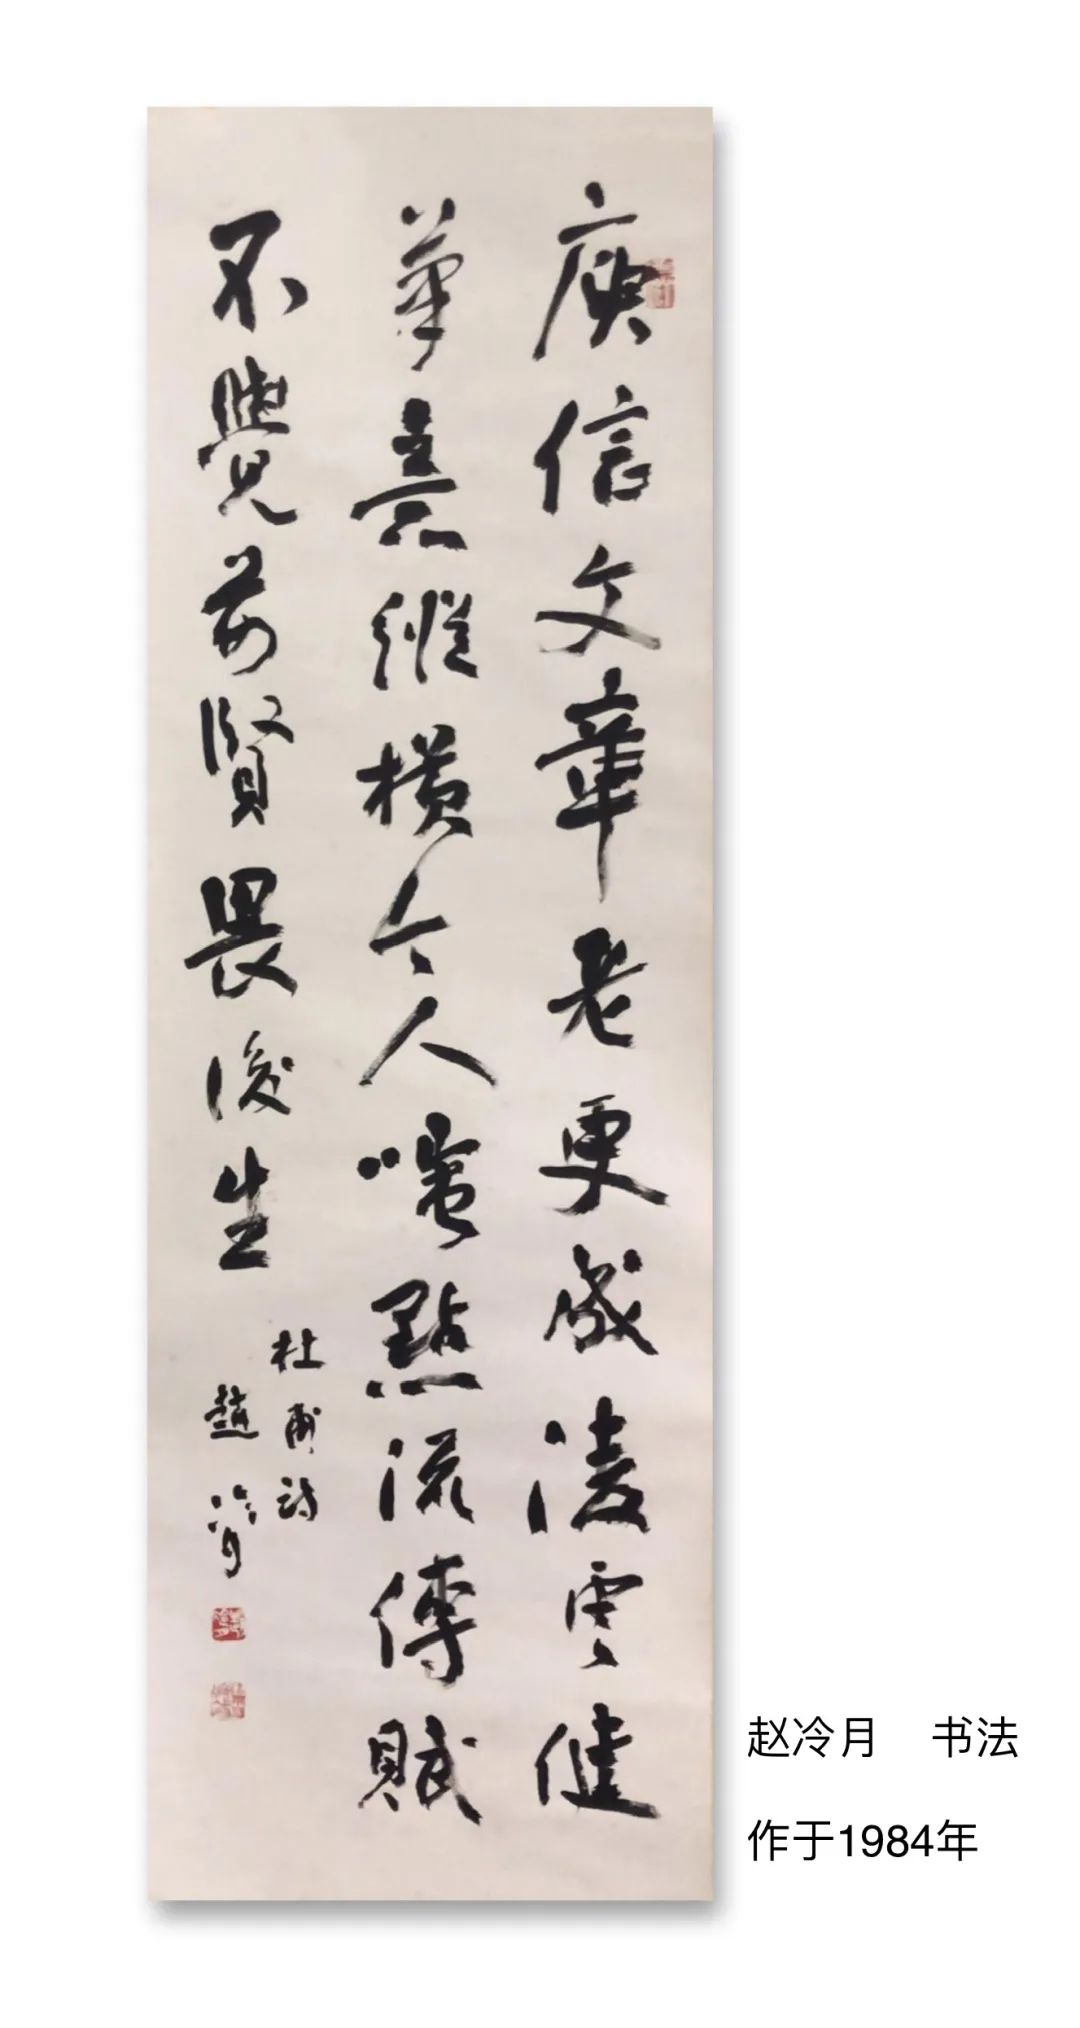 庾信文章老更成凌雲健
筆意縱橫今人嗤點流傳賦
不覺前賢畏後生
杜甫詩
趙冷月
赵冷月 书法
作于1984年